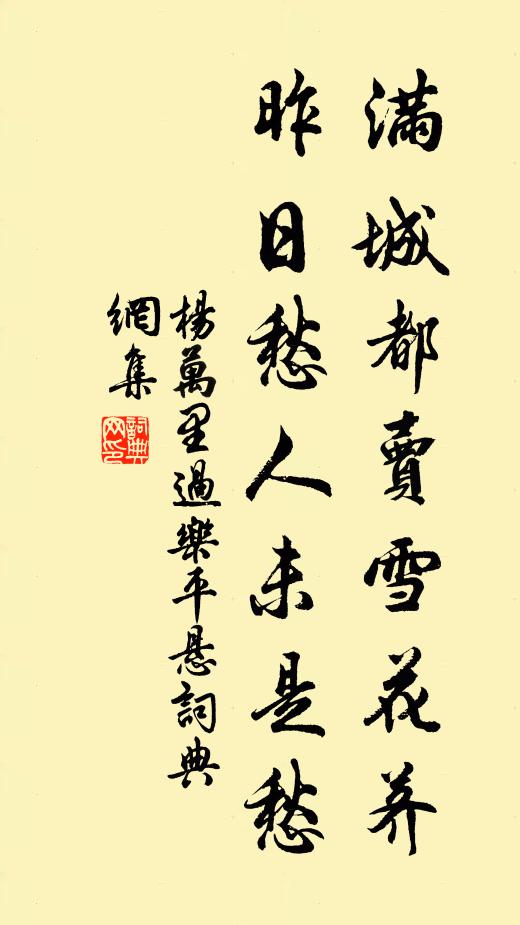 滿城都賣雪花养
昨日愁人未是愁
楊萬里過樂平悬詞典
網集
詞典
网印